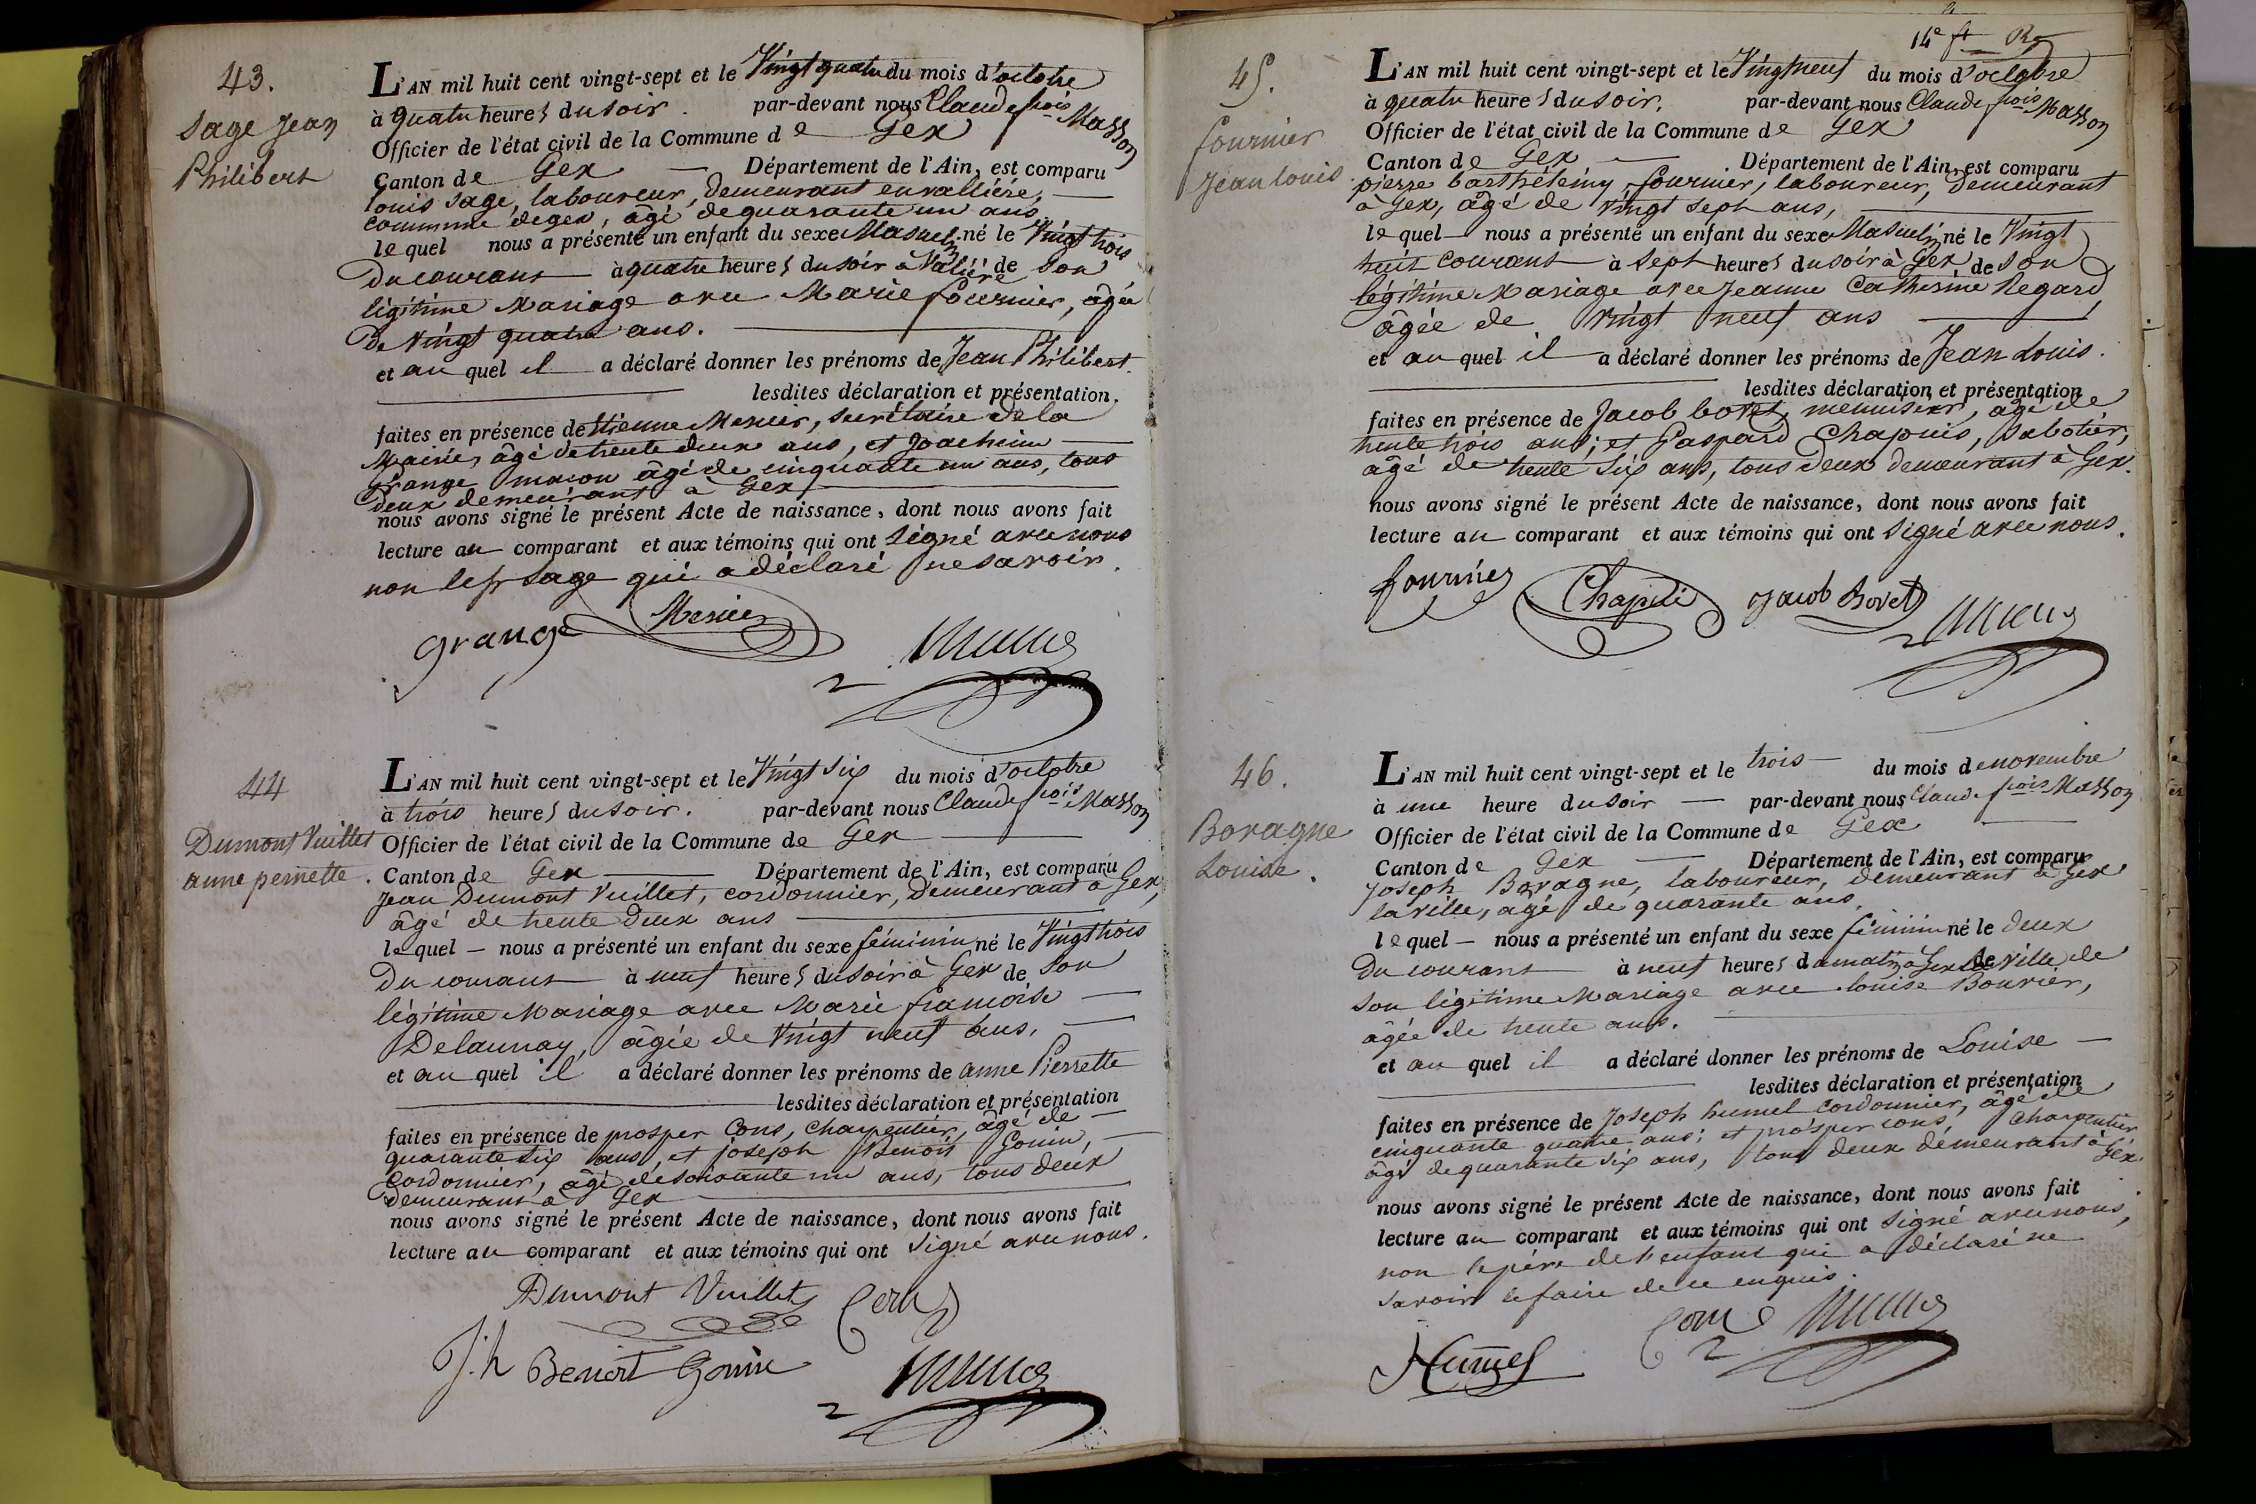 43.
Sage Jean
Philibert
L'AN mil huit cent vingt-sept et le Vingt quatre du mois d'octobre
à quatre heures du soir. par-devant nous Claude fçois Masson
Officier de l'état civil de la Commune de Gex
Canton de Gex — Département de l'Ain, est comparu
louis Sage, laboureur, demeurant en vallière, —
commune de gex, âgé de quarante un ans
lequel nous a présenté un enfant du sexe Masculin né le Vingt trois
du courant à quatre heures du soir à Valière de son
légitime Mariage avec Marie fournier, âgée
de Vingt quatre ans.
et au quel il a déclaré donner les prénoms de Jean Philibert.
lesdites déclaration et présentation.
faites en présence de Etienne Mercier, secrétaire de la
Mairie, âgé de trente deux ans, et Joachim
Grange maçon âgé de cinquante un ans, tous
deux demeurant à Gex
nous avons signé le présent Acte de naissance, dont nous avons fait
lecture au comparant et aux témoins qui ont Signé avec nous
non le sr Sage qui a déclaré ne savoir.
grange Mercier
44
Dumont Vuillet
anne pernette.
L'AN mil huit cent vingt-sept et le Vingt Six du mois d'octobre
à trois heures du soir. par-devant nous Claude fçois Masson
Officier de l'état civil de la Commune de Gex
Canton de Gex — Département de l'Ain, est comparu
Jean Dumont Vuillet, cordonnier, demeurant à Gex,
âgé de trente deux ans
lequel — nous a présenté un enfant du sexe féminin né le Vingt trois
du courant à neuf heures du soir à Gex de son
légitime Mariage avec Marie françoise —
Delaunay, âgée de Vingt neuf ans, —
et au quel il a déclaré donner les prénoms de anne Pierrette
lesdites déclaration et présentation
faites en présence de prosper Cons, charpentier, âgé de —
quarante six ans, et joseph Benoit Gonin, —
cordonnier, âgé de soixante un ans, tous deux
demeurant à Gex
nous avons signé le présent Acte de naissance, dont nous avons fait
lecture au comparant et aux témoins qui ont Signé avec nous.
Dumont Vuillet
J.h Benoit Gonin
14e ft
45.
fournier
Jean louis.
L'AN mil huit cent vingt-sept et le Vingt neuf du mois d'octobre
à quatre heures du soir. par-devant nous Claude fçois Masson
Officier de l'état civil de la Commune de Gex
Canton de Gex — Département de l'Ain, est comparu
pierre barthélemy, fournier, laboureur, demeurant
à Gex, âgé de vingt sept ans,
lequel — nous a présenté un enfant du sexe Masculin né le Vingt
huit courant à sept heures du soir à Gex de son
légitime Mariage avec Jeanne Catherine Regard,
âgée de vingt neuf ans
et au quel il a déclaré donner les prénoms de Jean Louis.
lesdites déclaration et présentation
faites en présence de Jacob bovet, menuisier, âgé de
trente trois ans; et Gaspard Chapuis, Sabotier,
âgé de trente six ans, tous deux demeurant à Gex.
nous avons signé le présent Acte de naissance, dont nous avons fait
lecture au comparant et aux témoins qui ont Signé avec nous.
fournier Jacob Bovet
46.
Boragne
Louise.
L'AN mil huit cent vingt-sept et le trois — du mois de novembre
à une heure du soir — par-devant nous Claude fçois Masson
Officier de l'état civil de la Commune de Gex
Canton de Gex — Département de l'Ain, est comparu
Joseph Boragne, laboureur, demeurant à Gex
la ville, âgé de quarante ans.
lequel — nous a présenté un enfant du sexe féminin né le deux
du courant à neuf heures du matin à Gex la ville de
son légitime Mariage avec louise Bouvier,
âgée de trente ans.
et au quel il a déclaré donner les prénoms de Louise —
lesdites déclaration et présentation
faites en présence de Joseph humel cordonnier, âgé de
cinquante quatre ans; et prosper cons, charpentier
âgé de quarante six ans, tous deux demeurant à Gex.
nous avons signé le présent Acte de naissance, dont nous avons fait
lecture au comparant et aux témoins qui ont Signé avec nous,
non le père de l'enfant qui a déclaré ne
savoir le faire de ce enquis.
Humel